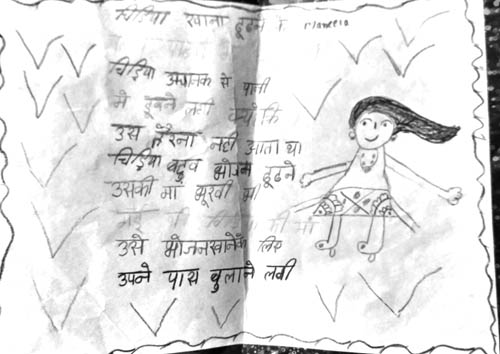 चिड़िया खाना ढूढने के
चिड़िया अचानक से पानी
मे डूबने लगी क्यों कि
उस तैरना नही आता था
चिड़िया बहुत भोजन ढूढने
उसकी मां भूखी थी
उसे भोजन खानेके लिए
उपने पास बुलाने लगी